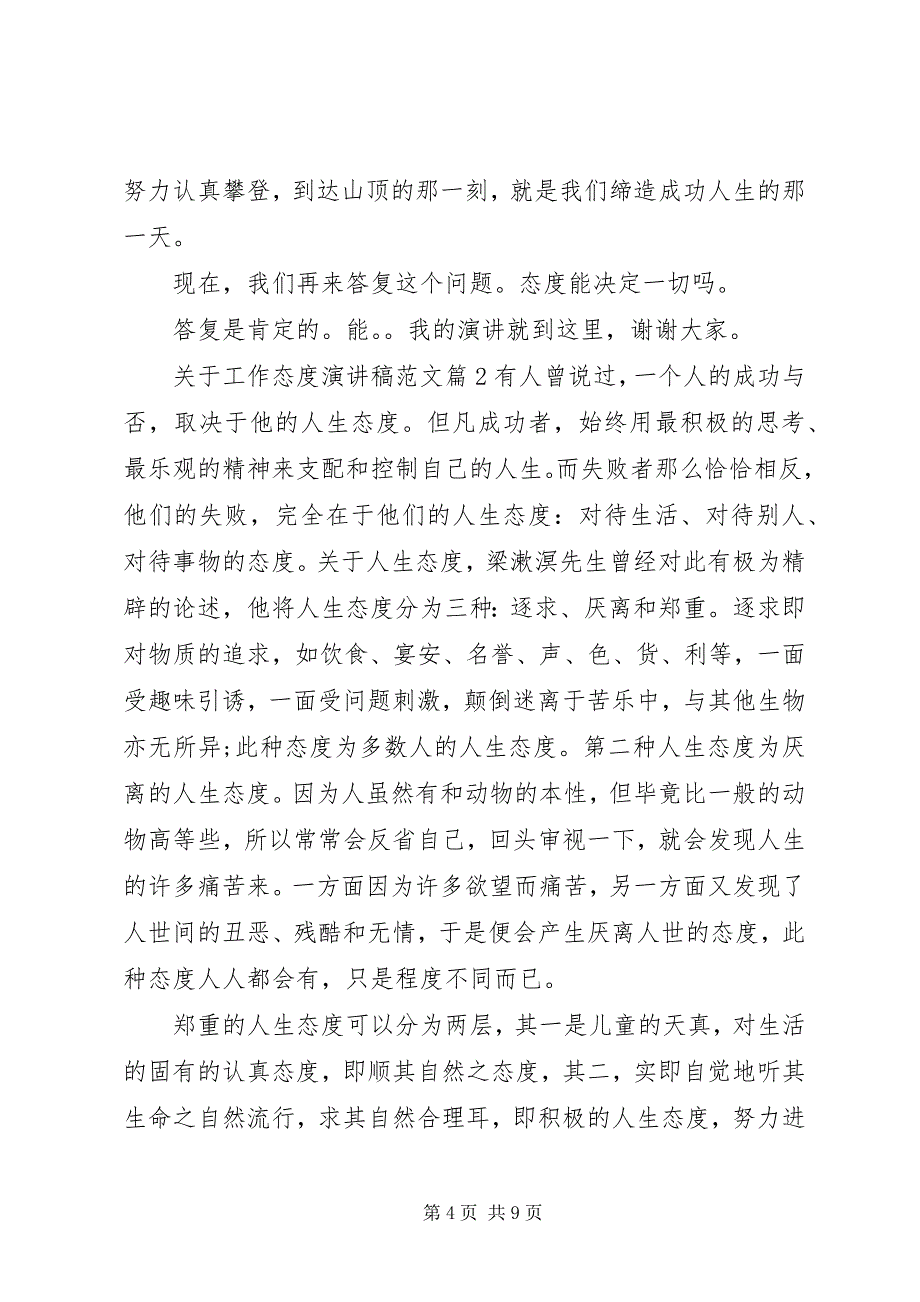 努力认真攀登，到达山顶的那一刻，就是我们缔造成功人生的那
一天。
现在，我们再来答复这个问题。态度能决定一切吗。
答复是肯定的。能。。我的演讲就到这里，谢谢大家。
关于工作态度演讲稿范文篇2有人曾说过，一个人的成功与
否，取决于他的人生态度。但凡成功者，始终用最积极的思考、
最乐观的精神来支配和控制自己的人生。而失败者那么恰恰相反，
他们的失败，完全在于他们的人生态度：对待生活、对待别人、
对待事物的态度。关于人生态度，梁漱溟先生曾经对此有极为精
辟的论述，他将人生态度分为三种：逐求、厌离和郑重。逐求即
对物质的追求，如饮食、宴安、名誉、声、色、货、利等，一面
受趣味引诱，一面受问题刺激，颠倒迷离于苦乐中，与其他生物
亦无所异;此种态度为多数人的人生态度。第二种人生态度为厌
离的人生态度。因为人虽然有和动物的本性，但毕竟比一般的动
物高等些，所以常常会反省自己，回头审视一下，就会发现人生
的许多痛苦来。一方面因为许多欲望而痛苦，另一方面又发现了
人世间的丑恶、残酷和无情，于是便会产生厌离人世的态度，此
种态度人人都会有，只是程度不同而已。
郑重的人生态度可以分为两层，其一是儿童的天真，对生活
的固有的认真态度，即顺其自然之态度，其二，实即自觉地听其
生命之自然流行，求其自然合理耳，即积极的人生态度，努力进
第4页 共9页